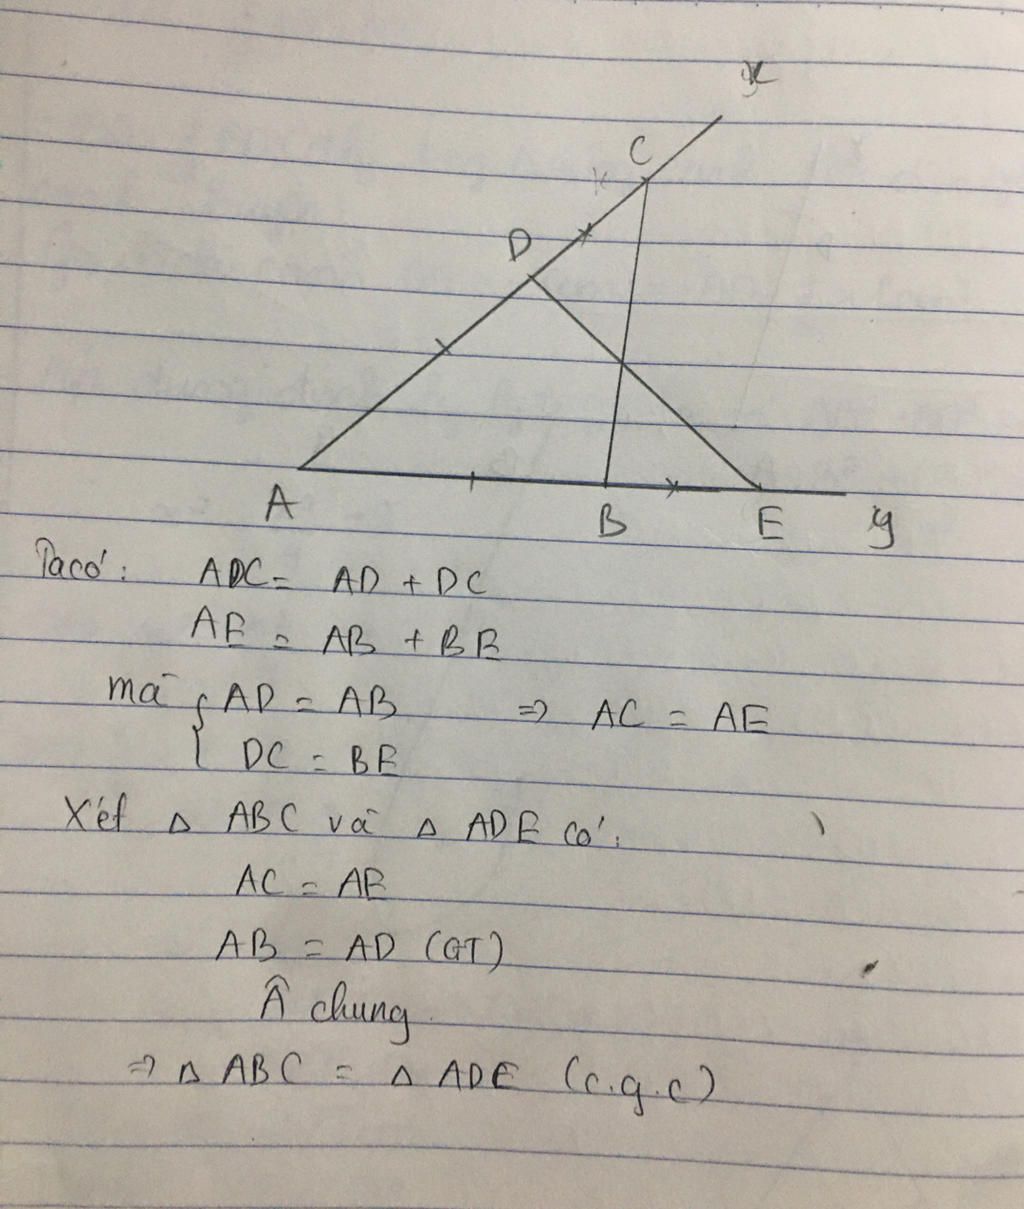 x
C
D
A
B
E
y
Ta có: ADC = AD + DC
AE = AB + BE
mà { AD = AB ⇒ AC = AE
DC = BE
Xét Δ ABC và Δ ADE có:
AC = AE
AB = AD (GT)
Â chung
⇒ Δ ABC = Δ ADE (c.g.c)